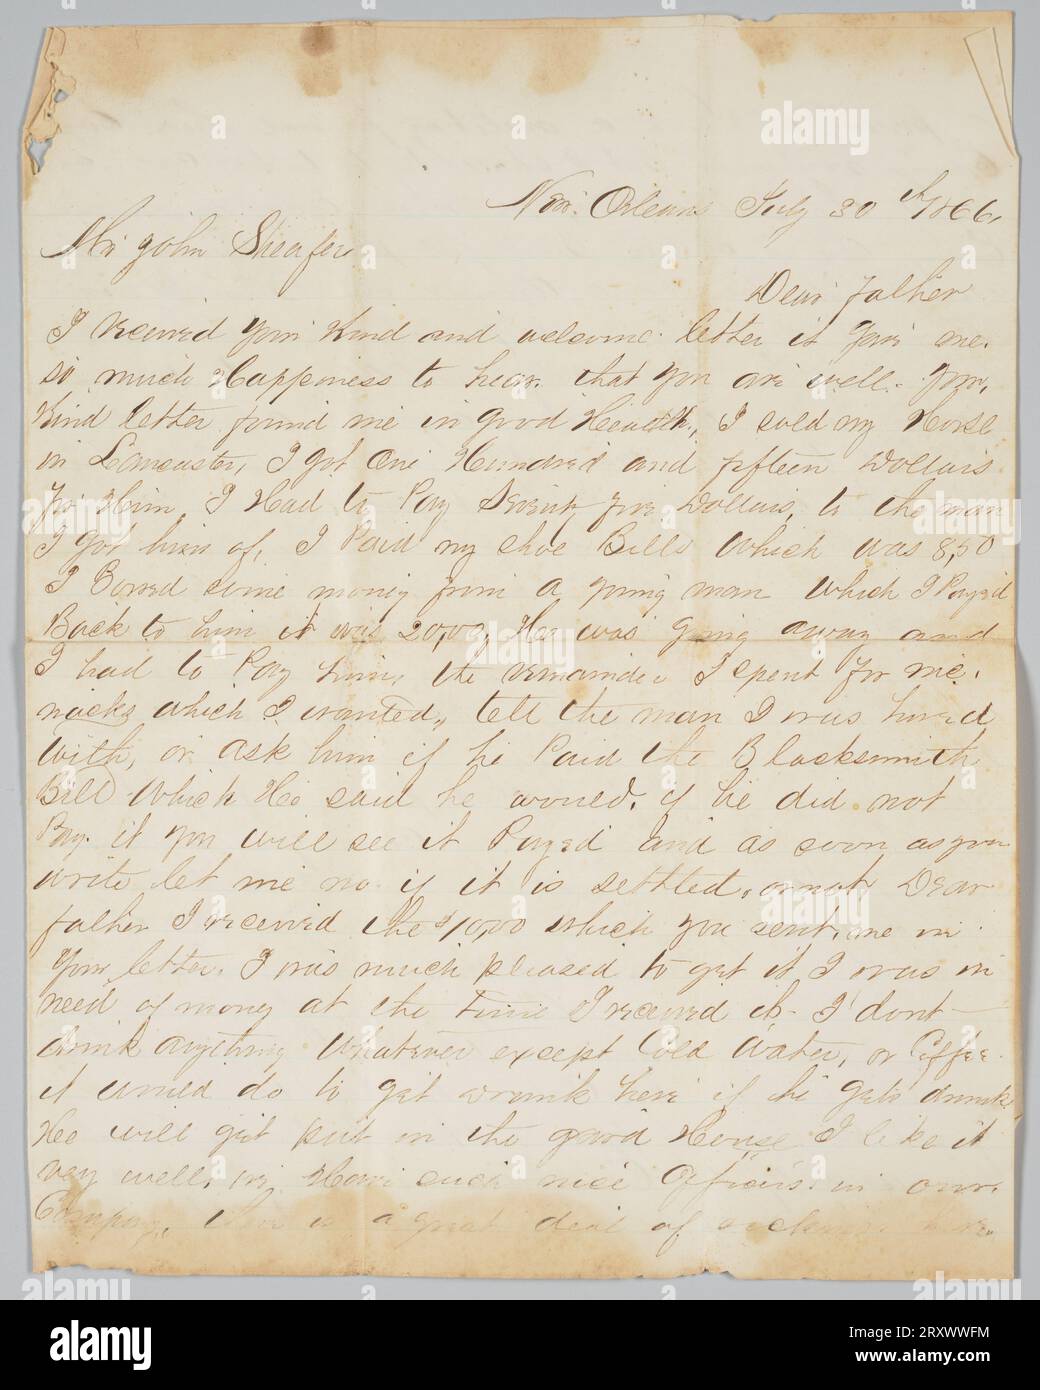 New. Orleans July 30th 1866,
Mr John Sheafer
Dear father
I received your kind and welcome letter it gave me.
so much Happiness to hear that you are well. your,
Kind letter found me in good Health., I sold my Horse
in Lancaster, I got one Hundred and fifteen Dollars.
for Him I Had to Pay Seventy five Dollars, to the man
I got him of, I Paid my shoe Bills which was 8,50
I Borred some money from a young man which I Payed
Back to him it was 20,00, He was going away and
I had to Pay him, the remainder I spent for nic.
nacks which I wanted, tell the man I was hired
with, or ask him if he Paid the Blacksmith
Bill which He said he would, if he did not
Pay. it you will see it Payed and as soon as you
write let me no if it is settled, or not Dear
father I received the $10,00 which you sent, me in
your letter. I was much pleased to get it I was in
need of money at the time I received it. I dont
drink anything whatever except Cold Water, or Coffee.
it would do to get drunk here if he gets drunk
He will get put in the guard House I like it
very well, we Have such nice Officers in our.
Company, there is a great deal of sickness here.
alamy
a
alamy
a
alamy
alamy
a
alamy
a
alamy
a
alamy
alamy
Image ID: 2RXWWFM
www.alamy.com